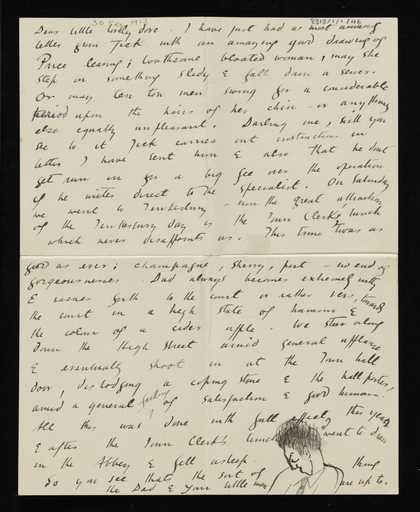 30 Sep 1917
Dear little lovely dove. I have just had a most amusing
letter from Jack with an amazing good drawing of
Price leering; loathsome bloated woman, may she
step on something slidy & fall down a sewer.
Or may ten ton men swing for a considerable
period upon the hairs of her chin or anything
else equally unpleasant. Darling one, will you
see to it Jack carries out instructions in
letter I have sent him & also that he dont
get run in for a big fee over the operation
if he writes direct to the specialist. On Saturday
we went to Tewkesbury - now the great attraction
of the Tewkesbury Day is the Town Clerk's lunch
which never disappoints us. This time 'twas as
good as ever; champagne, sherry, port - no end of
gorgeousnesses. Dad always becomes extremely witty
& issues forth to the court or rather towards
the court in a high state of humour &
the colour of a cider apple. We stroll along
down the High Street amid general applause
& eventually shoot in at the Town hall
door, dislodging a coping stone & the hall porter,
amid a general feeling of satisfaction & good humour.
All this was done with full effect this year
& after the Town Clerk's lunch I went to draw
in the Abbey & fell asleep.
So you see thats the sort of thing
the Dad & your little man are up to.